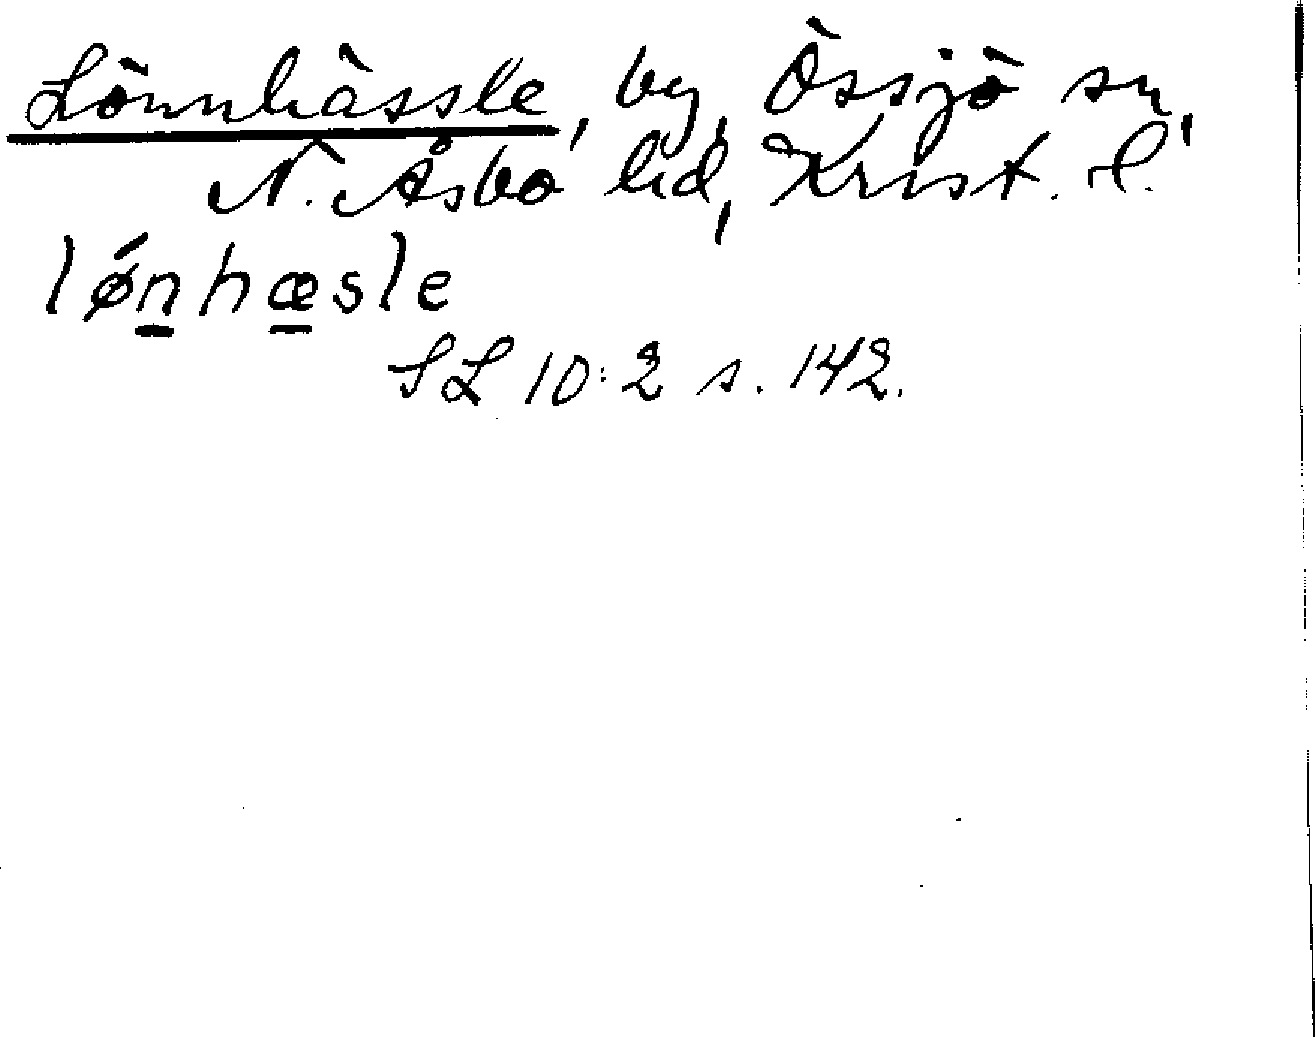 Lönnhässle, by, Össjö sn,
N. Åsbo hd, Krist. l.
lǿn̲hæ̲sle
SL 10:2 s. 142.